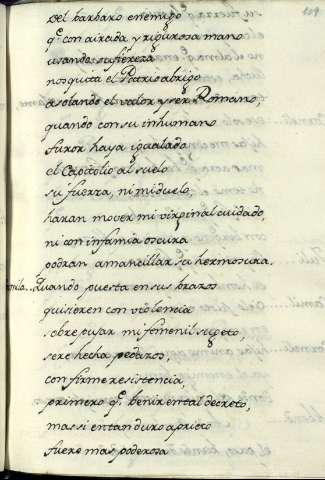 109
Del barbaro enemigo
q.e con airada y rigurosa mano
usando su fiereza
nos quita el Patrio abrigo
asolando el valor y ser Romano,
quando con su inhumano
furor haya igualado
el Capitolio al suelo
su fuerza, ni mi duelo,
haran mover mi virginal cuidado,
ni con infamia oscura
podran amancillar su hermosura.
mila.. Quando puesta en sus brazos
quisieren con violencia
sobrepujar mi femenil sugeto,
sere hecha pedazos,
con firme resistencia,
primero q.e benir en tal decreto,
mas si en tan duro aprieto
fuere mas poderosa